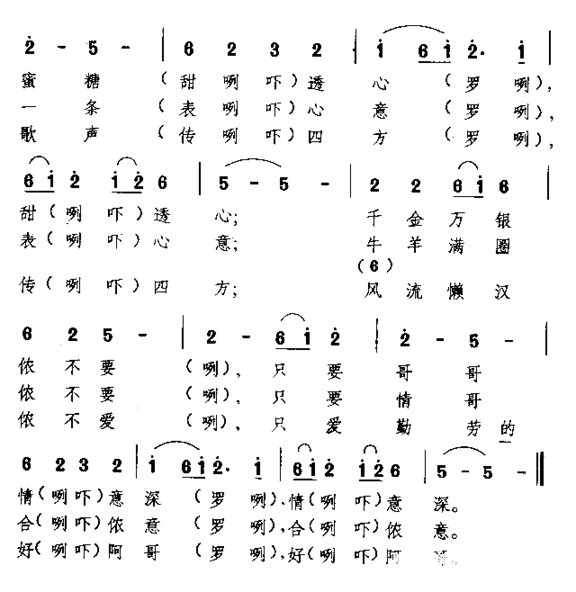 2̇ - 5 - | 6 2 3 2 | i 6i 2̇· i |
蜜 糖 (甜 咧 吓)透 心 (罗 咧),
一 条 (表 咧 吓)心 意 (罗 咧),
歌 声 (传 咧 吓)四 方 (罗 咧),
6i 2̇ i2̇ 6 | 5 - 5 - | 2 2 6i 6 |
甜(咧 吓)透 心; 千 金 万 银
表(咧 吓)心 意; 牛 羊 满 圈
(6)
传(咧 吓)四 方; 风 流 懒 汉
6 2 5 - | 2 - 6i 2̇ | 2̇ - 5 - |
侬 不 要 (咧), 只 要 哥 哥
侬 不 要 (咧), 只 要 情 哥
侬 不 爱 (咧), 只 爱 勤 劳 的
6 2 3 2 | i 6i 2̇· i | 6i 2̇ i2̇ 6 | 5 - 5 - ‖
情(咧 吓)意 深 (罗 咧),情(咧 吓)意 深。
合(咧 吓)侬 意 (罗 咧),合(咧 吓)侬 意。
好(咧 吓)阿 哥 (罗 咧),好(咧 吓)阿 哥。